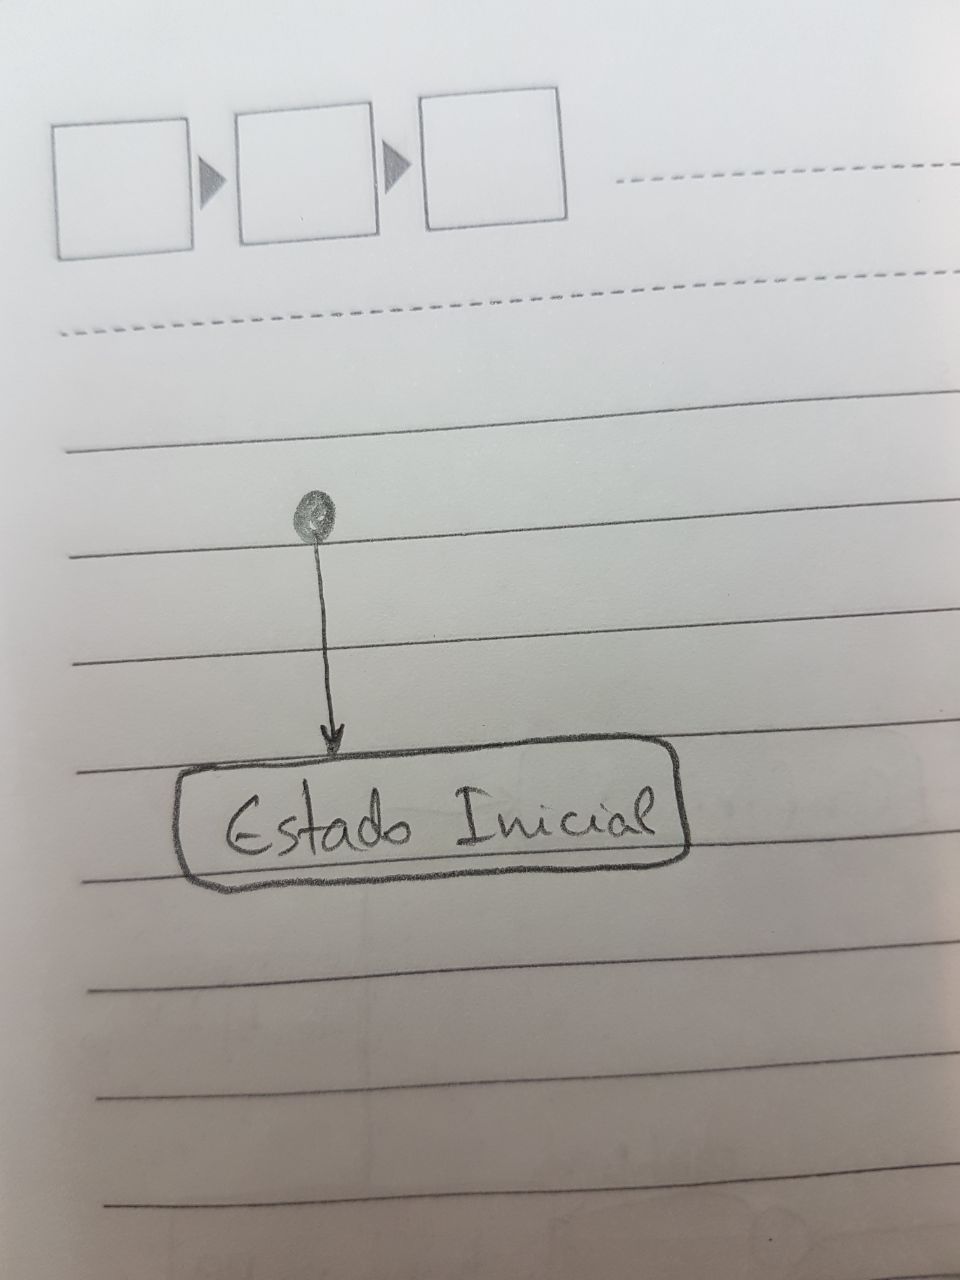 Estado Inicial